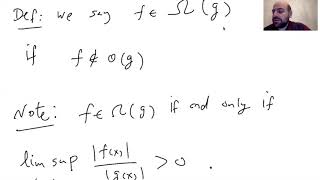 Def: we say f ∈ Ω(g)
if f ∉ o(g)
Note: f ∈ Ω(g) if and only if
lim sup |f(x)| / |g(x)| > 0 .